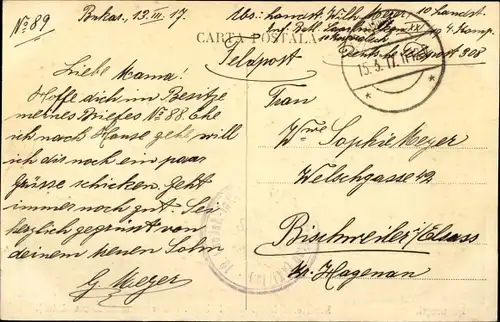 No 89
13. III. 17.
Abs: Landst. Wilh. Meyer, 10 Landst.
Inf. Batl.
CARTA POSTALA
Feldpost
308
15.3.17.
Liebe Mama!
Hoffe dich im Besitze
meines Briefes No 88. Ehe
ich nach Hause gehe will
ich dir noch ein paar
Grüsse schicken, geht
immer noch gut. Sei
herzlich gegrüsst von
deinem Sohn
Meyer
Frau
Wwe Sophie Meyer
Welschgasse 42
Bischweiler i/Elsass
Kr. Hagenau